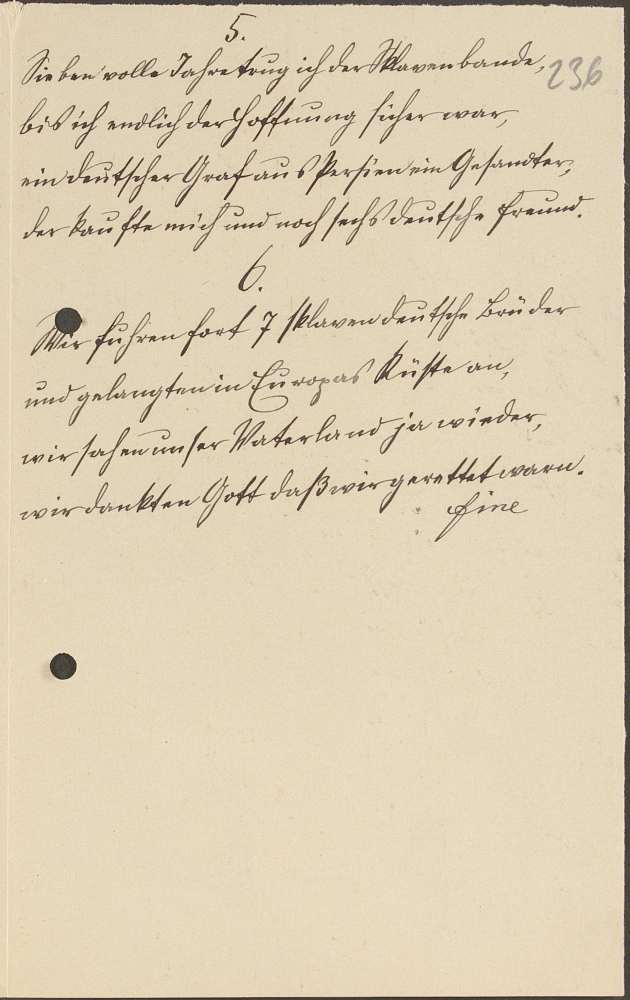 5.
236
Sieben volle Jahre trug ich der Sklavenbande,
bis ich endlich der Hoffnung sicher war,
ein deutscher Graf aus Persien ein Gesandter,
der kaufte mich und noch sechs deutsche Freund.
6.
Wir fuhren fort 7 sklaven deutsche Brüder
und gelangten in Europas Küste an,
wir sahen unser Vaterland ja wieder,
wir dankten Gott daß wir gerettet warn.
Fine